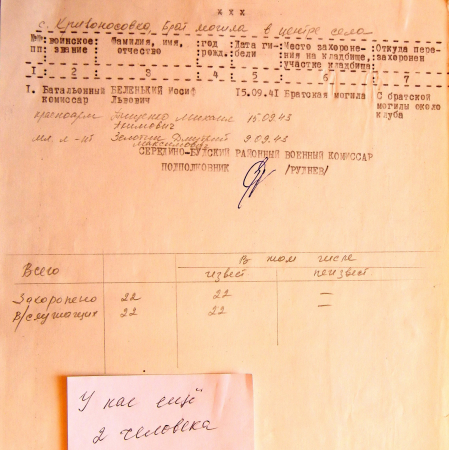 х х х
с. Кривоносовка Брат могила в центре села
№№ воинское Фамилия, имя, год Дата ги- Место захороне- Откуда пере-
пп: звание отчество рожд. бели ния на кладбище, захоронен
участке кладбища
I : 2 : 3 : 4 : 5 : 6 : 7
I. Батальонный БЕЛЕНЬКИЙ Иосиф I5.09.4I Братская могила С братской
комиссар Львович могилы около
клуба
Михаил 15.09.43
мл. л-нт Дмитрий 9.09.43
Максимович
СЕРЕДИНО-БУДСКИЙ РАЙОННЫЙ ВОЕННЫЙ КОМИССАР
ПОДПОЛКОВНИК /РУДНЕВ/
В том числе
Всего извест неизвест
Захоронено 22 22 =
В/служащих 22 22 =
У нас ещё
2 человека